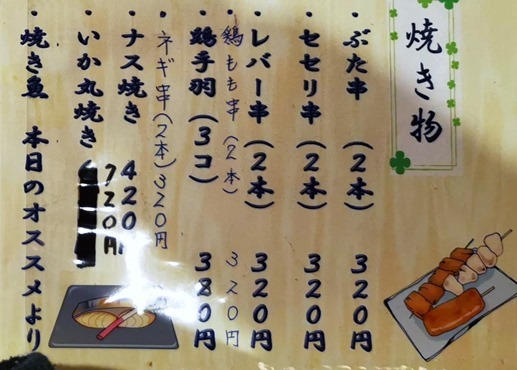 焼き物
・ぶた串（2本）320円
・セセリ串（2本）320円
・レバー串（2本）320円
・鶏もも串（2本）320円
・鶏手羽（3コ）380円
・ネギ串（2本）320円
・ナス焼き 420円
・いか丸焼き 720円
・焼き魚 本日のオススメより